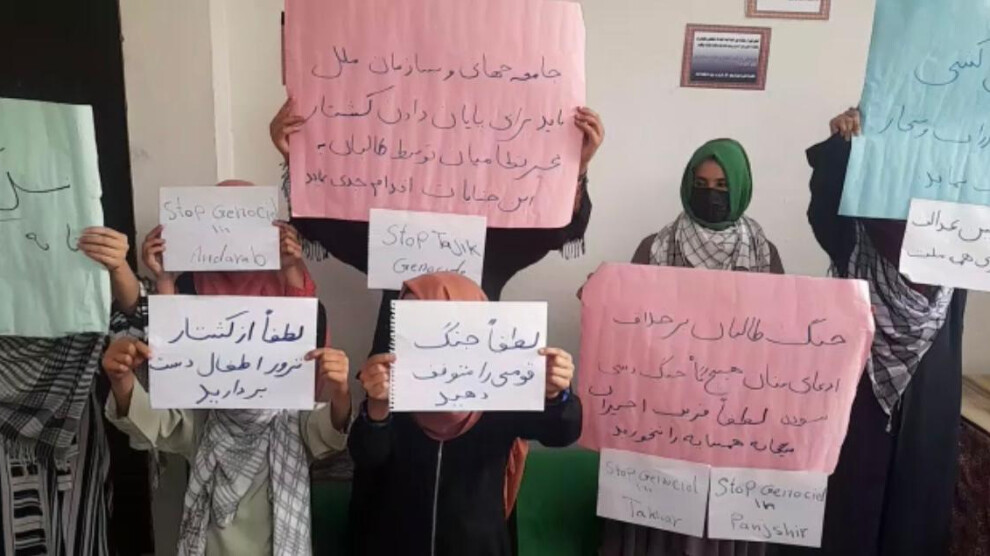 جامعه جهای و سازمان ملل
باید برای پایان دادن کشتار
غیرنظامیان توسط طالبان به
این جنایات اقدام جدی نماید
Stop Genocid
in
Andarab
Stop Tajik
Genocide
لطفاً از کشتار
ترور اطفال دست
بردارید
لطفاً جنگ
قومی را متوقف
دهید
جنگ طالبان برخلاف
ادعای شان هیچگاه جنگ دینی
نبوده لطفاً فریب
همسایه را نخورید
Stop Genocid
in
Takhar
Stop Genocid
in
Panjshir
نسل
کشی
عدالت
هی ملت